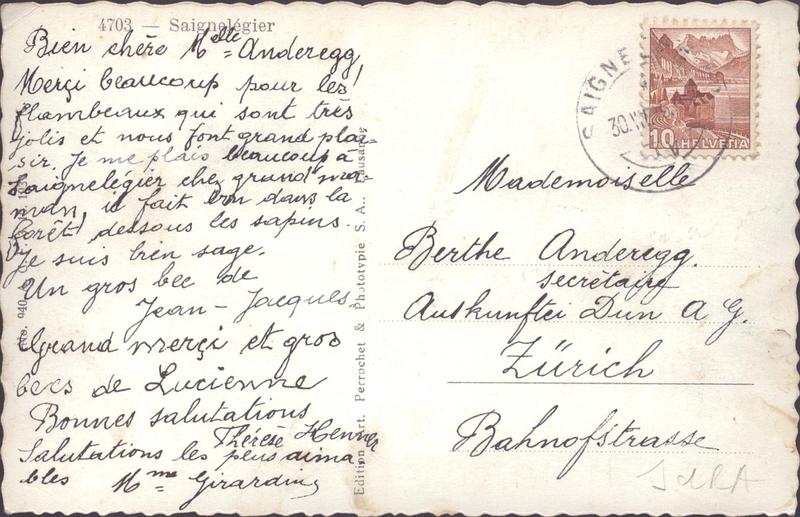 4703 — Saignelégier
Bien chère Melle Anderegg,
Merçi beaucoup pour les
flambeaux qui sont très
jolis et nous font grand plai-
sir. Je me plais beaucoup à
Saignelégier chez grand'ma-
man, il fait bon dans la
forêt, dessous les sapins.
Je suis bien sage.
Un gros bec de
Jean-Jacques.
Grand merçi et gros
becs de Lucienne
Bonnes salutations
Thérèse Henner
Salutations les plus aima-
bles Mme Girardin
Edition Art. Perrochet & Phototypie S. A., Lausanne
No. 940
SAIGNE
30.VII
10 HELVETIA
Mademoiselle
Berthe Anderegg.
secrétaire
Auskunftei Dun A G.
Zürich
Bahnofstrasse
JURA